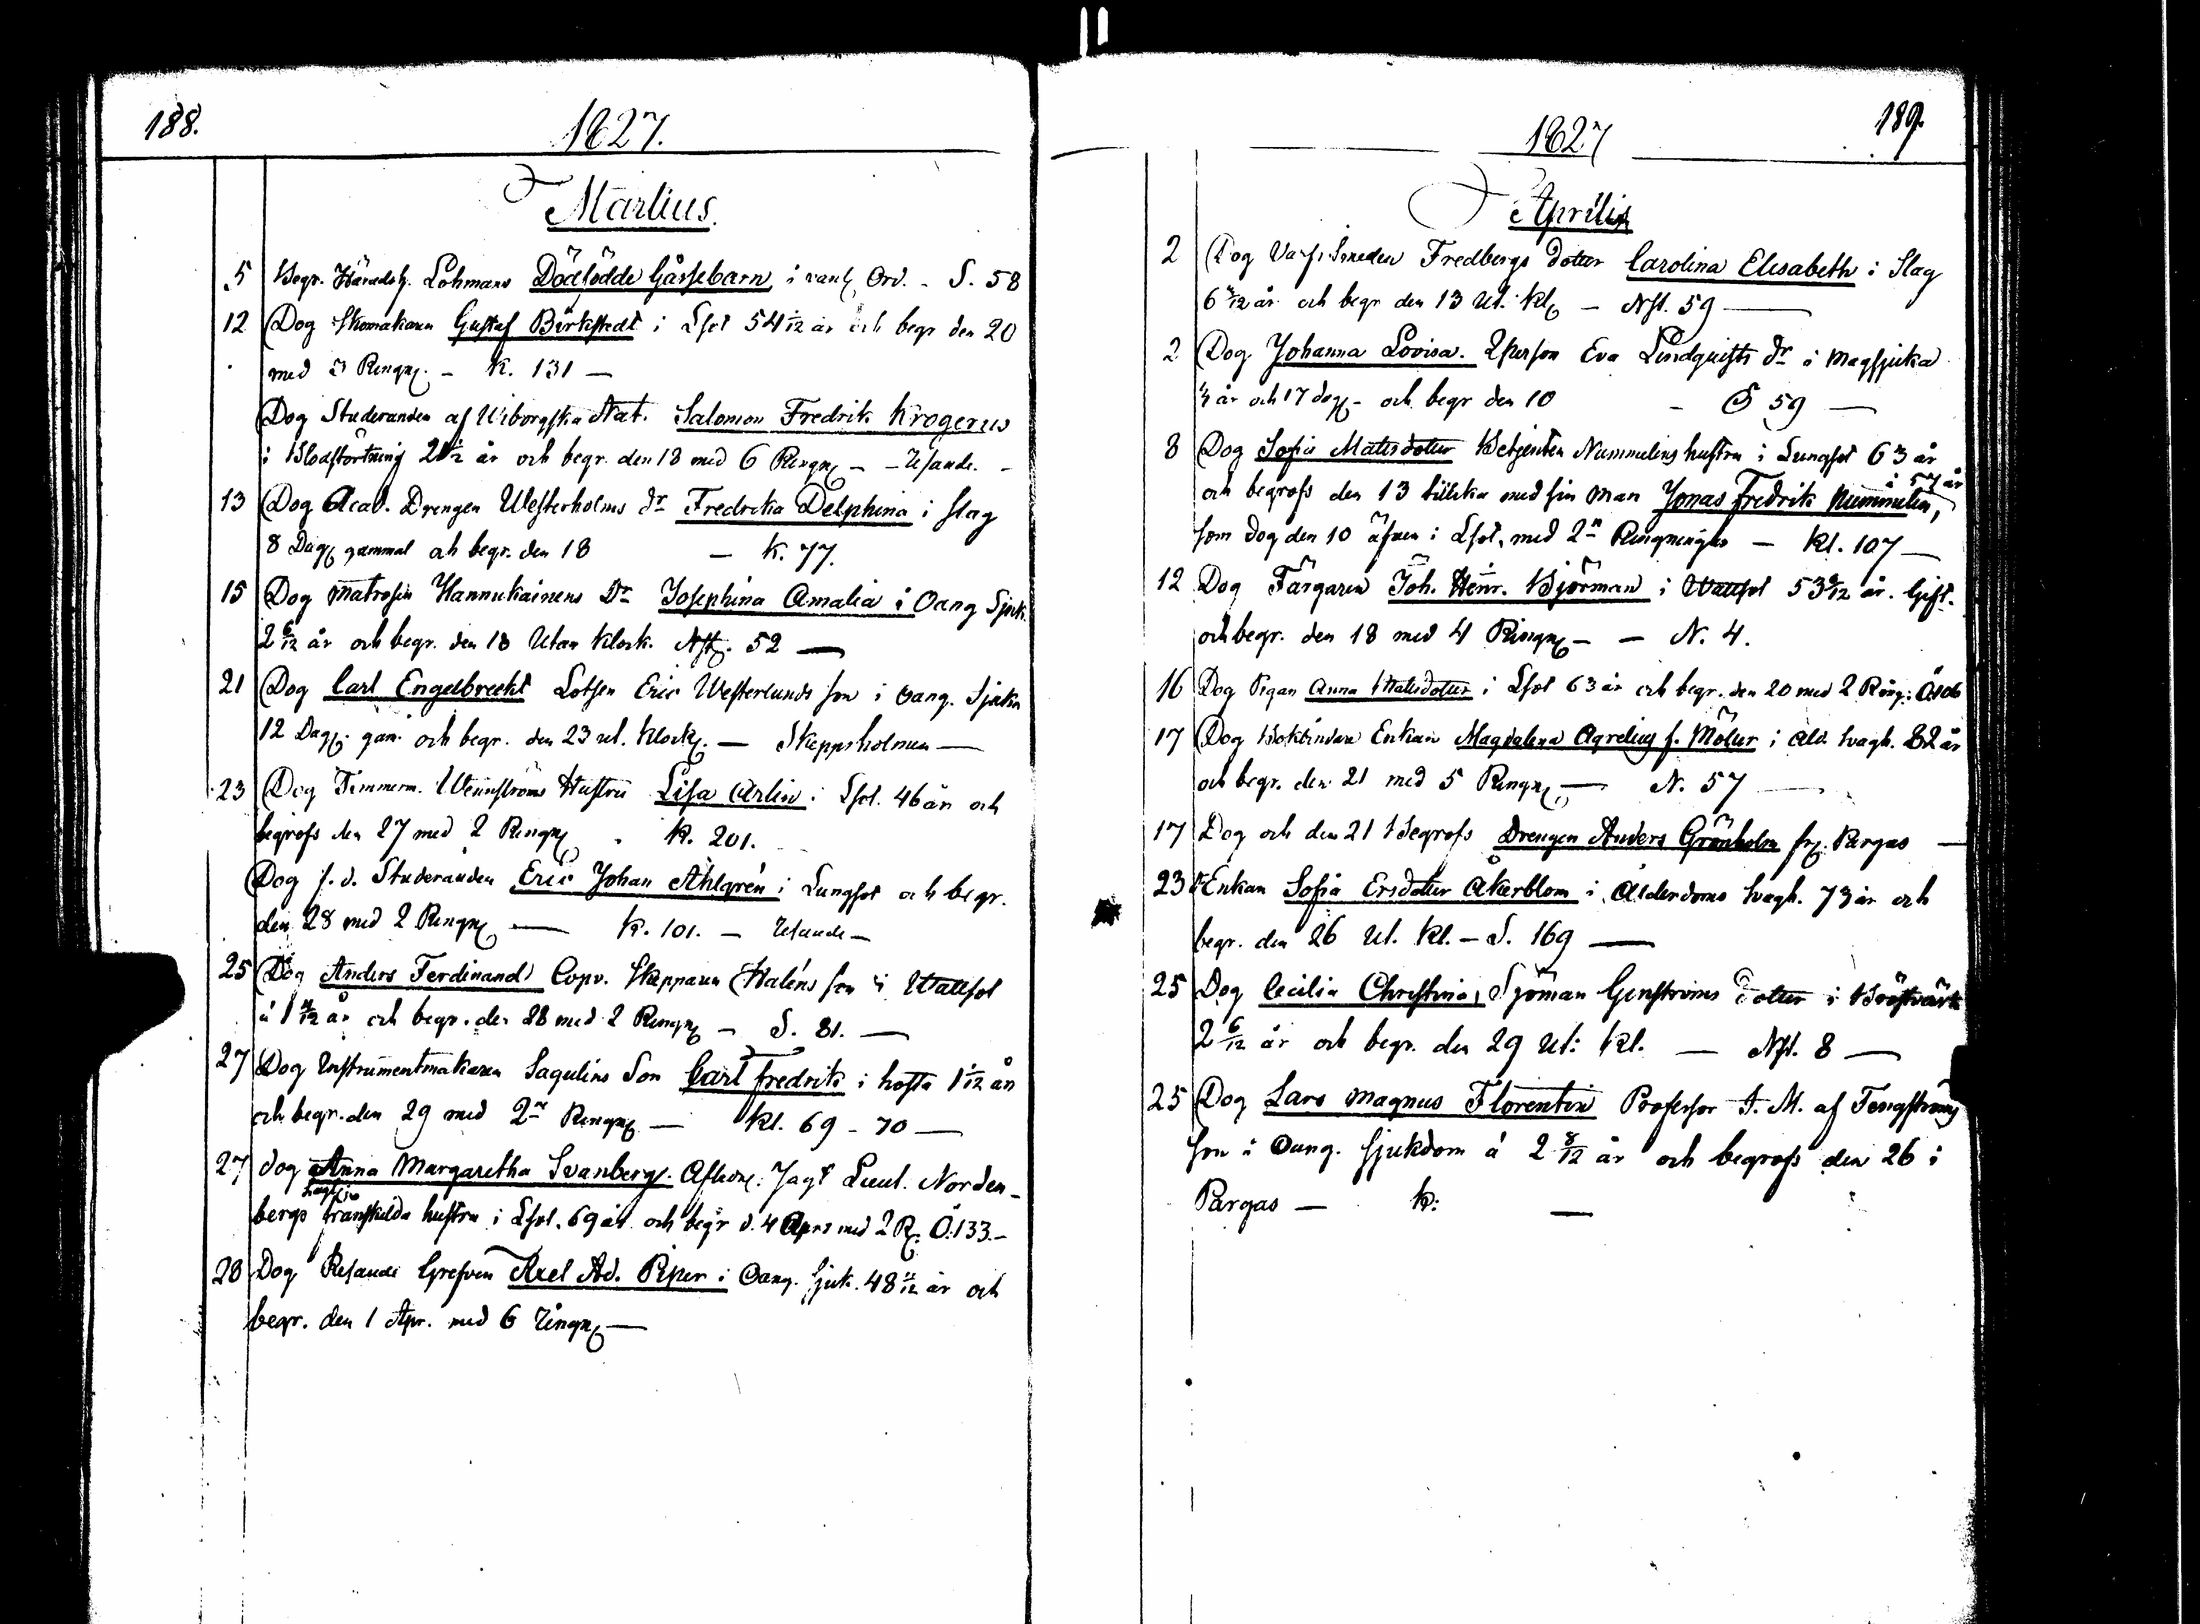 188.
1827.
Martius.
5 Begr. Häradsh. Lohmans Dödfödde Gåssebarn, i vanl. Ord. - S. 58
12 Dog Skomakaren Gustaf Börkstedt i Lsot 54 1/12 år och begr den 20
med 3 Ringn. - K. 131 -
Dog Studeranden af Wiborgska Nat. Salomon Fredrik Krogerus
i Blodstörtning 21 1/2 år och begr. den 18 med 6 Ringn. - - Resande. -
13 Dog Acad. Drengen Westerholms dr Fredrika Delphina i slag
8 Dag. gammal och begr. den 18 - K. 77.
15 Dog Matrosen Hannukainens Dr Josephina Amalia i Oang Sjuk.
2 6/12 år och begr. den 18 Utan Klock. Nst. 52 -
21 Dog Carl Engelbrecht Lotsen Eric Westerlunds son i oang. Sjukn
12 Dag. gam. och begr. den 23 ut. Klock. - Skeppsholmen -
23 Dog Timmerm. Wennströms Hustru Lisa Arlin i Lsot. 46 år och
begrofs den 27 med 2 Ringn. K. 201.
Dog f. d. Studeranden Eric Johan Ahlgrén i Lungsot och begr.
den 28 med 2 Ringn. - K. 101. - Resande -
25 Dog Anders Ferdinand Copv. Skepparen Haléns son i Wattsot
á 1 11/12 år och begr. den 28 med 2 Ringn. - S. 81. -
27 Dog Instrumentmakaren Sagulins Son Carl Fredrik i hosta 1 1/12 år
och begr. den 29 med 2ne Ringn. - Kl. 69 - 70 -
27 dog Anna Margaretha Svanberg. Afledne Jagt Lieut. Norden-
bergs franskilda hustru i Lsot, 69 år och begr d. 4 Apr. med 2 R. Ö. 133. -
28 Dog Resande Grefven Axel Ad. Piper i Oang. sjuk. 48 11/12 år och
begr. den 1 Apr. med 6 ringn. -
189.
1827
Aprilis
2 Dog Varfs Smeden Fredbergs dotter Carolina Elisabeth i Slag
6 3/12 år och begr den 13 ut. Kl. - Nst. 59 -
2 Dog Johanna Lovisa. Qperson Eva Lindquists dr i magsjuka
1/4 år och 17 dag. - och begr den 10 - S 59 -
8 Dog Sofia Matsdotter Betjenten Nummelins hustru i Lungsot 63 år
och begrofs den 13 tillika med sin man Jonas Fredrik Nummelin, á 57 år
som dog den 10 äfven i Lsot, med 2ne Ringningar - Kl. 107 -
12 Dog Färgaren Joh. Henr. Björman i Wattsot 53 9/12 år. Gift.
och begr. den 18 med 4 Ringn. - - N. 4.
16 Dog Pigan Anna Matsdotter i Lsot 63 år och begr. den 20 med 2 Ring.
17 Dog Bokbindare Enkan Magdalena Agrelius f. Möller i Ald. svagh. 82 år
och begr. den 21 med 5 Ringn. - N. 57
17 Dog och den 21 Begrofs Drengen Anders Grönholm fr. Pargas -
23 Enkan Sofia Ersdotter Åkerblom i Ålderdoms svagh. 73 år och
begr. den 26 Ut. Kl. - S. 169 -
25 Dog Cecilia Christina, Sjöman Genströms dotter i Bröstvärk
2 6/12 år och begr. den 29 Ut: Kl. - Nst. 8 -
25 Dog Lars Magnus Florentin Professor J. M. af Tengströms
son i Oang. sjukdom á 2 8/12 år och begrofs den 26 i
Pargas - K: -